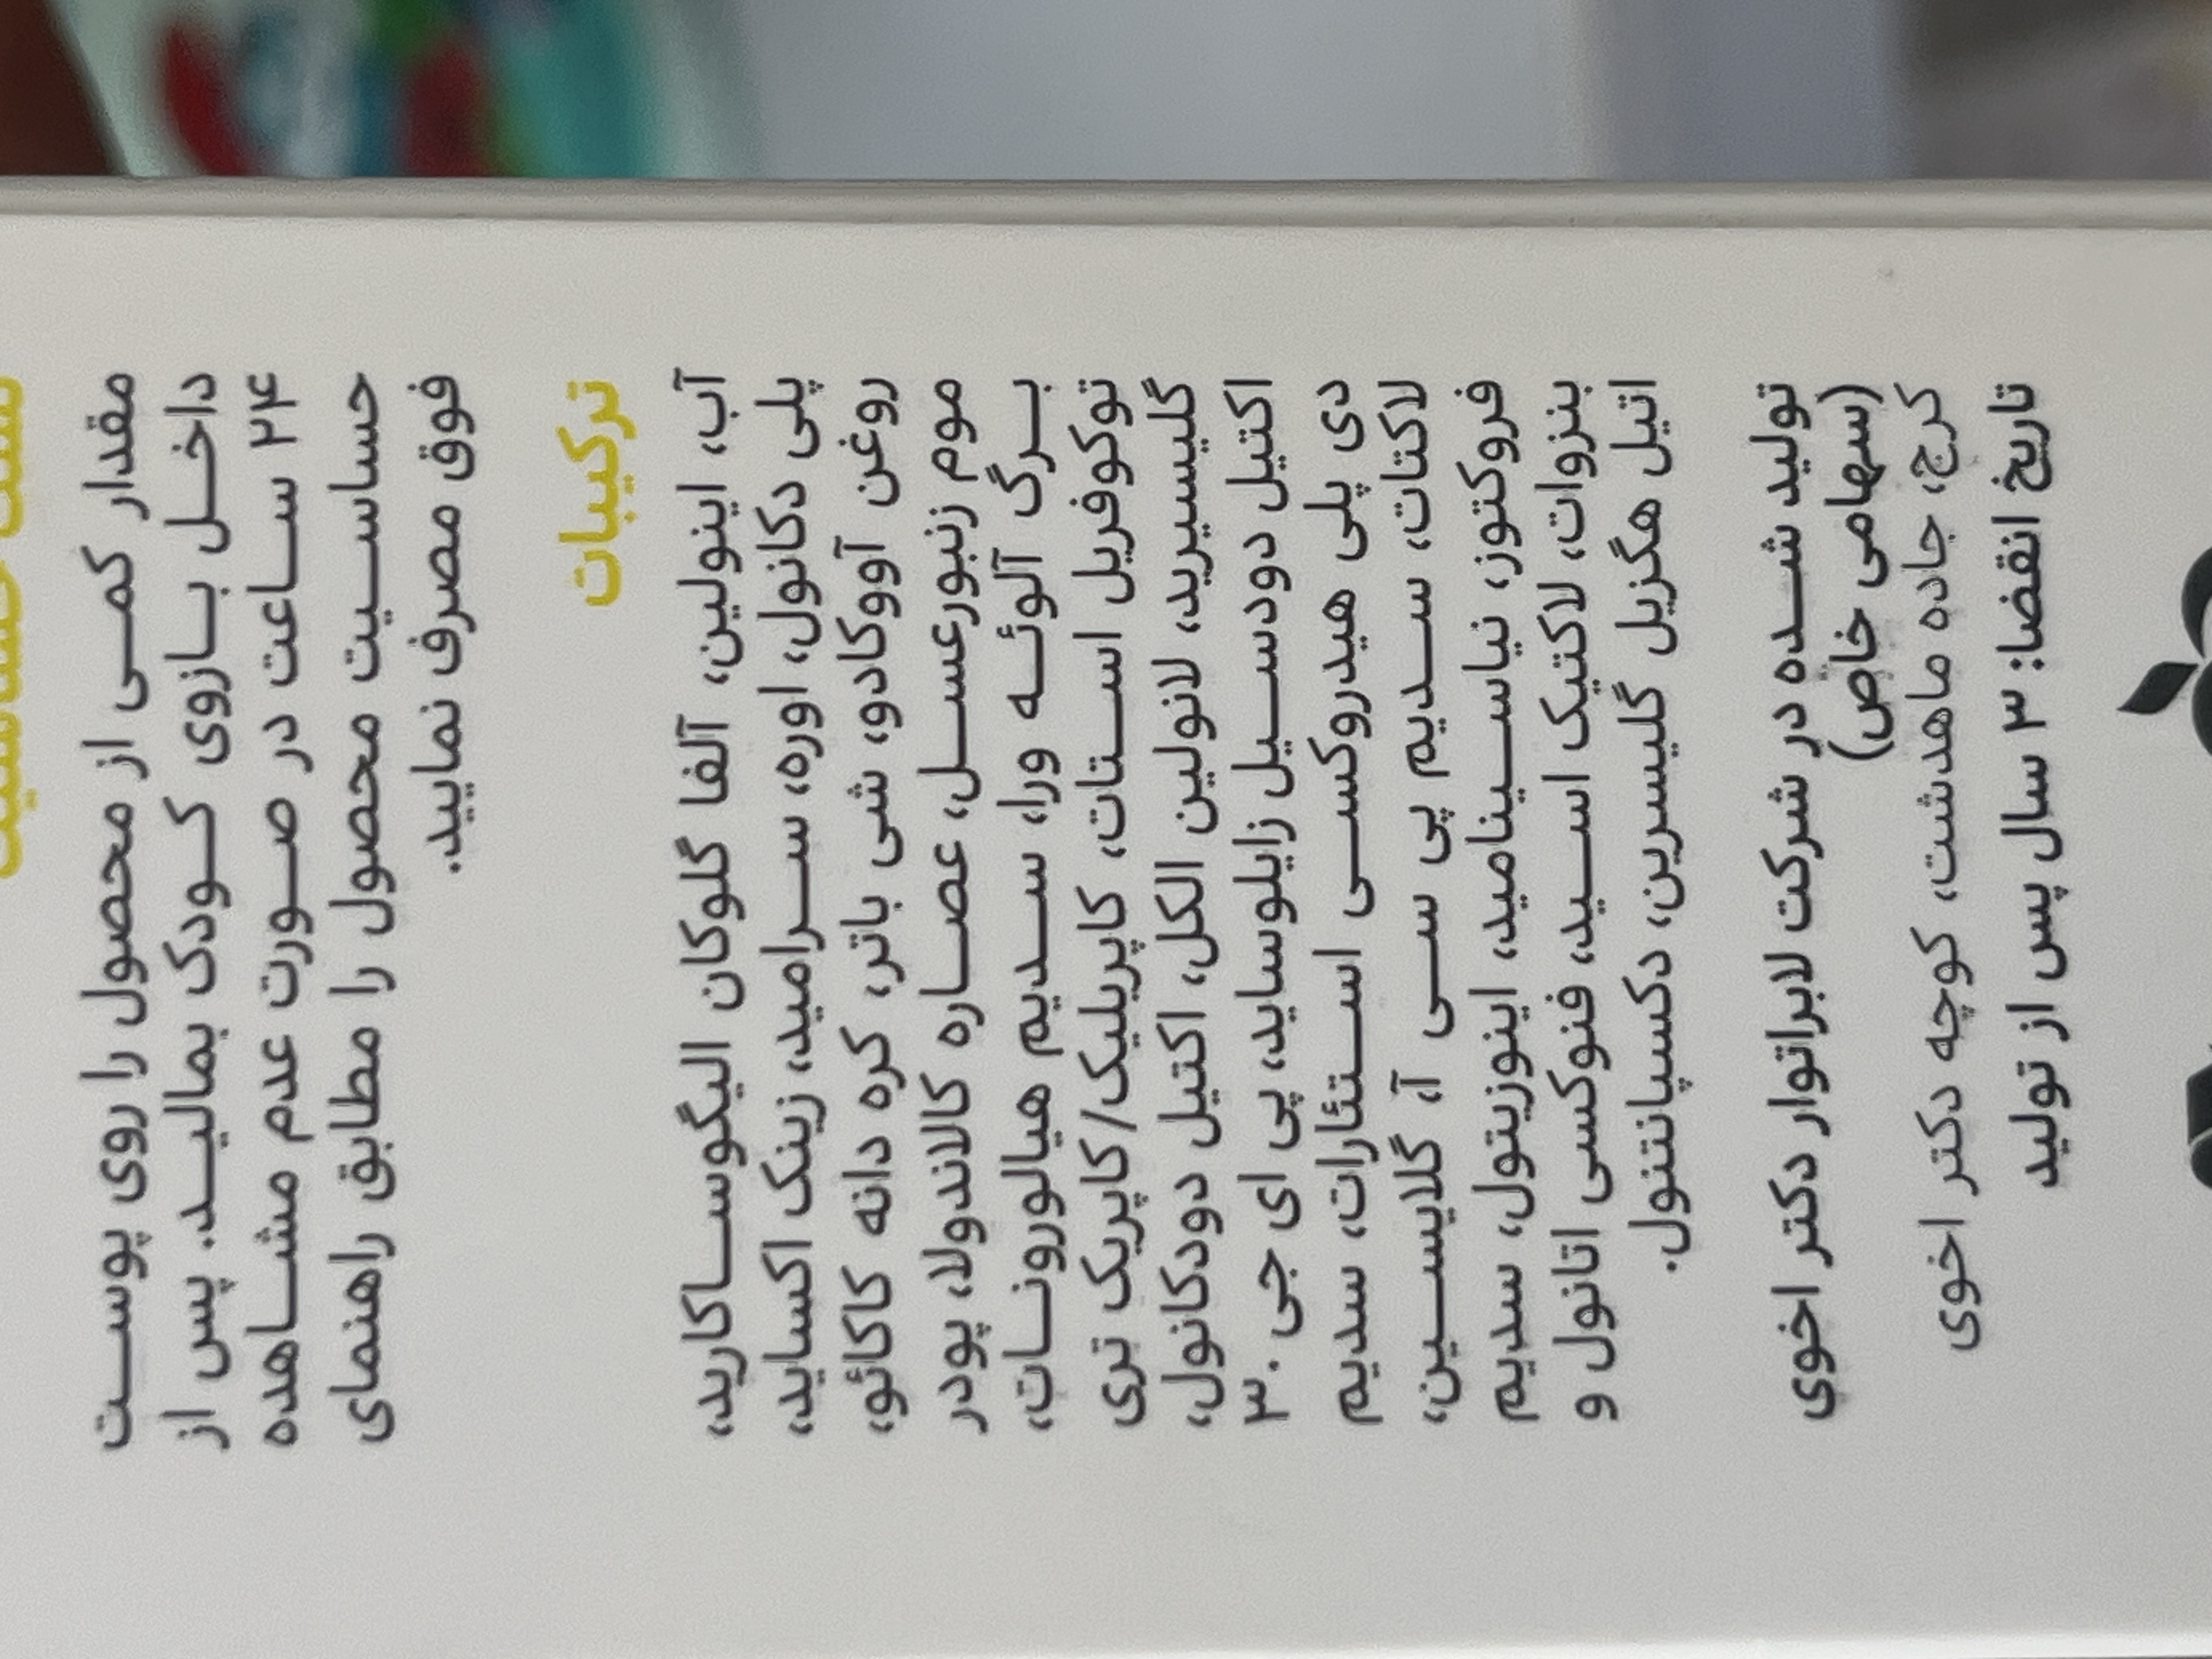 تست حساسیت
مقدار کمی از محصول را روی پوست
داخل بازوی کودک بمالید. پس از
۲۴ ساعت در صورت عدم مشاهده
حساسیت محصول را مطابق راهنمای
فوق مصرف نمایید.
ترکیبات
آب، اینولین، آلفا گلوکان الیگوساکارید،
پلی دکانول، اوره، سرامید، زینک اکساید،
روغن آووکادو، شی باتر، کره دانه کاکائو،
موم زنبورعسل، عصاره کالاندولا، پودر
برگ آلوئه ورا، سدیم هیالورونات،
توکوفریل استات، کاپریلیک/کاپریک تری
گلیسیرید، لانولین الکل، اکتیل دودکانول،
اکتیل دودسیل زایلوساید، پی ای جی ۳۰
دی پلی هیدروکسی استئارات، سدیم
لاکتات، سدیم پی سی آ، گلایسین،
فروکتوز، نیاسینامید، اینوزیتول، سدیم
بنزوات، لاکتیک اسید، فنوکسی اتانول و
اتیل هگزیل گلیسرین، دکسپانتنول.
تولید شده در شرکت لابراتوار دکتر اخوی
(سهامی خاص)
کرج، جاده ماهدشت، کوچه دکتر اخوی
تاریخ انقضا: ۳ سال پس از تولید